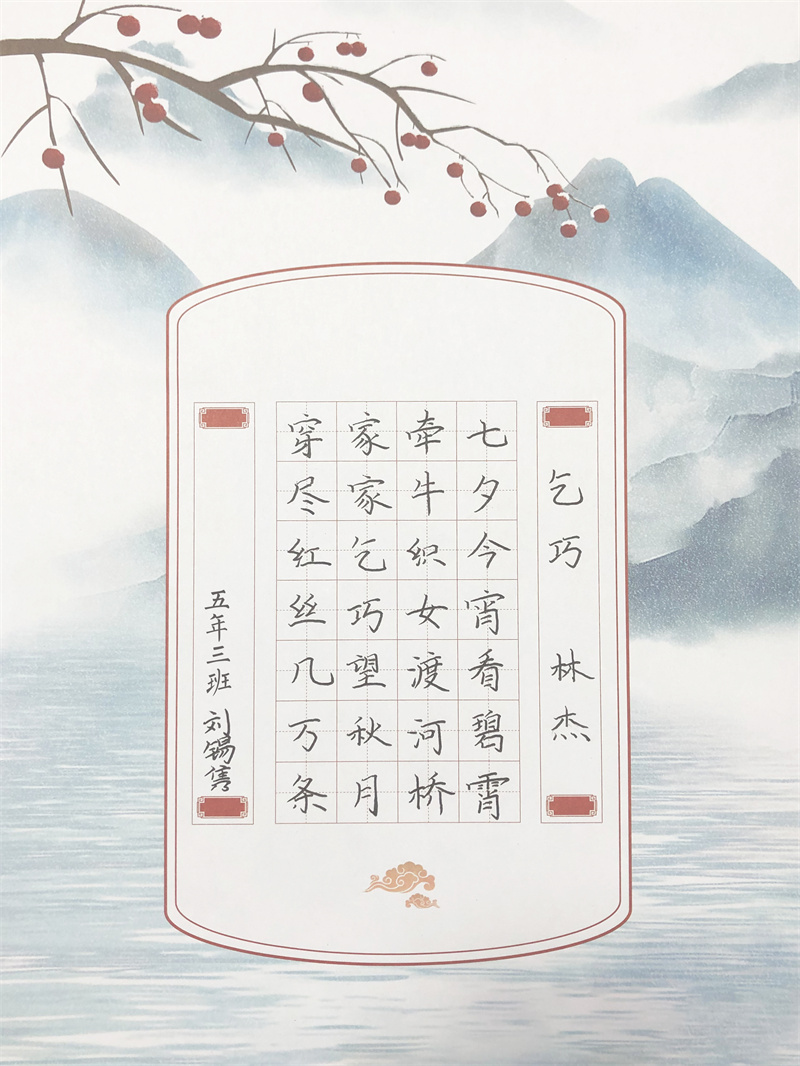 乞巧 林杰
七夕今宵看碧霄
牵牛织女渡河桥
家家乞巧望秋月
穿尽红丝几万条
五年三班 刘锡隽